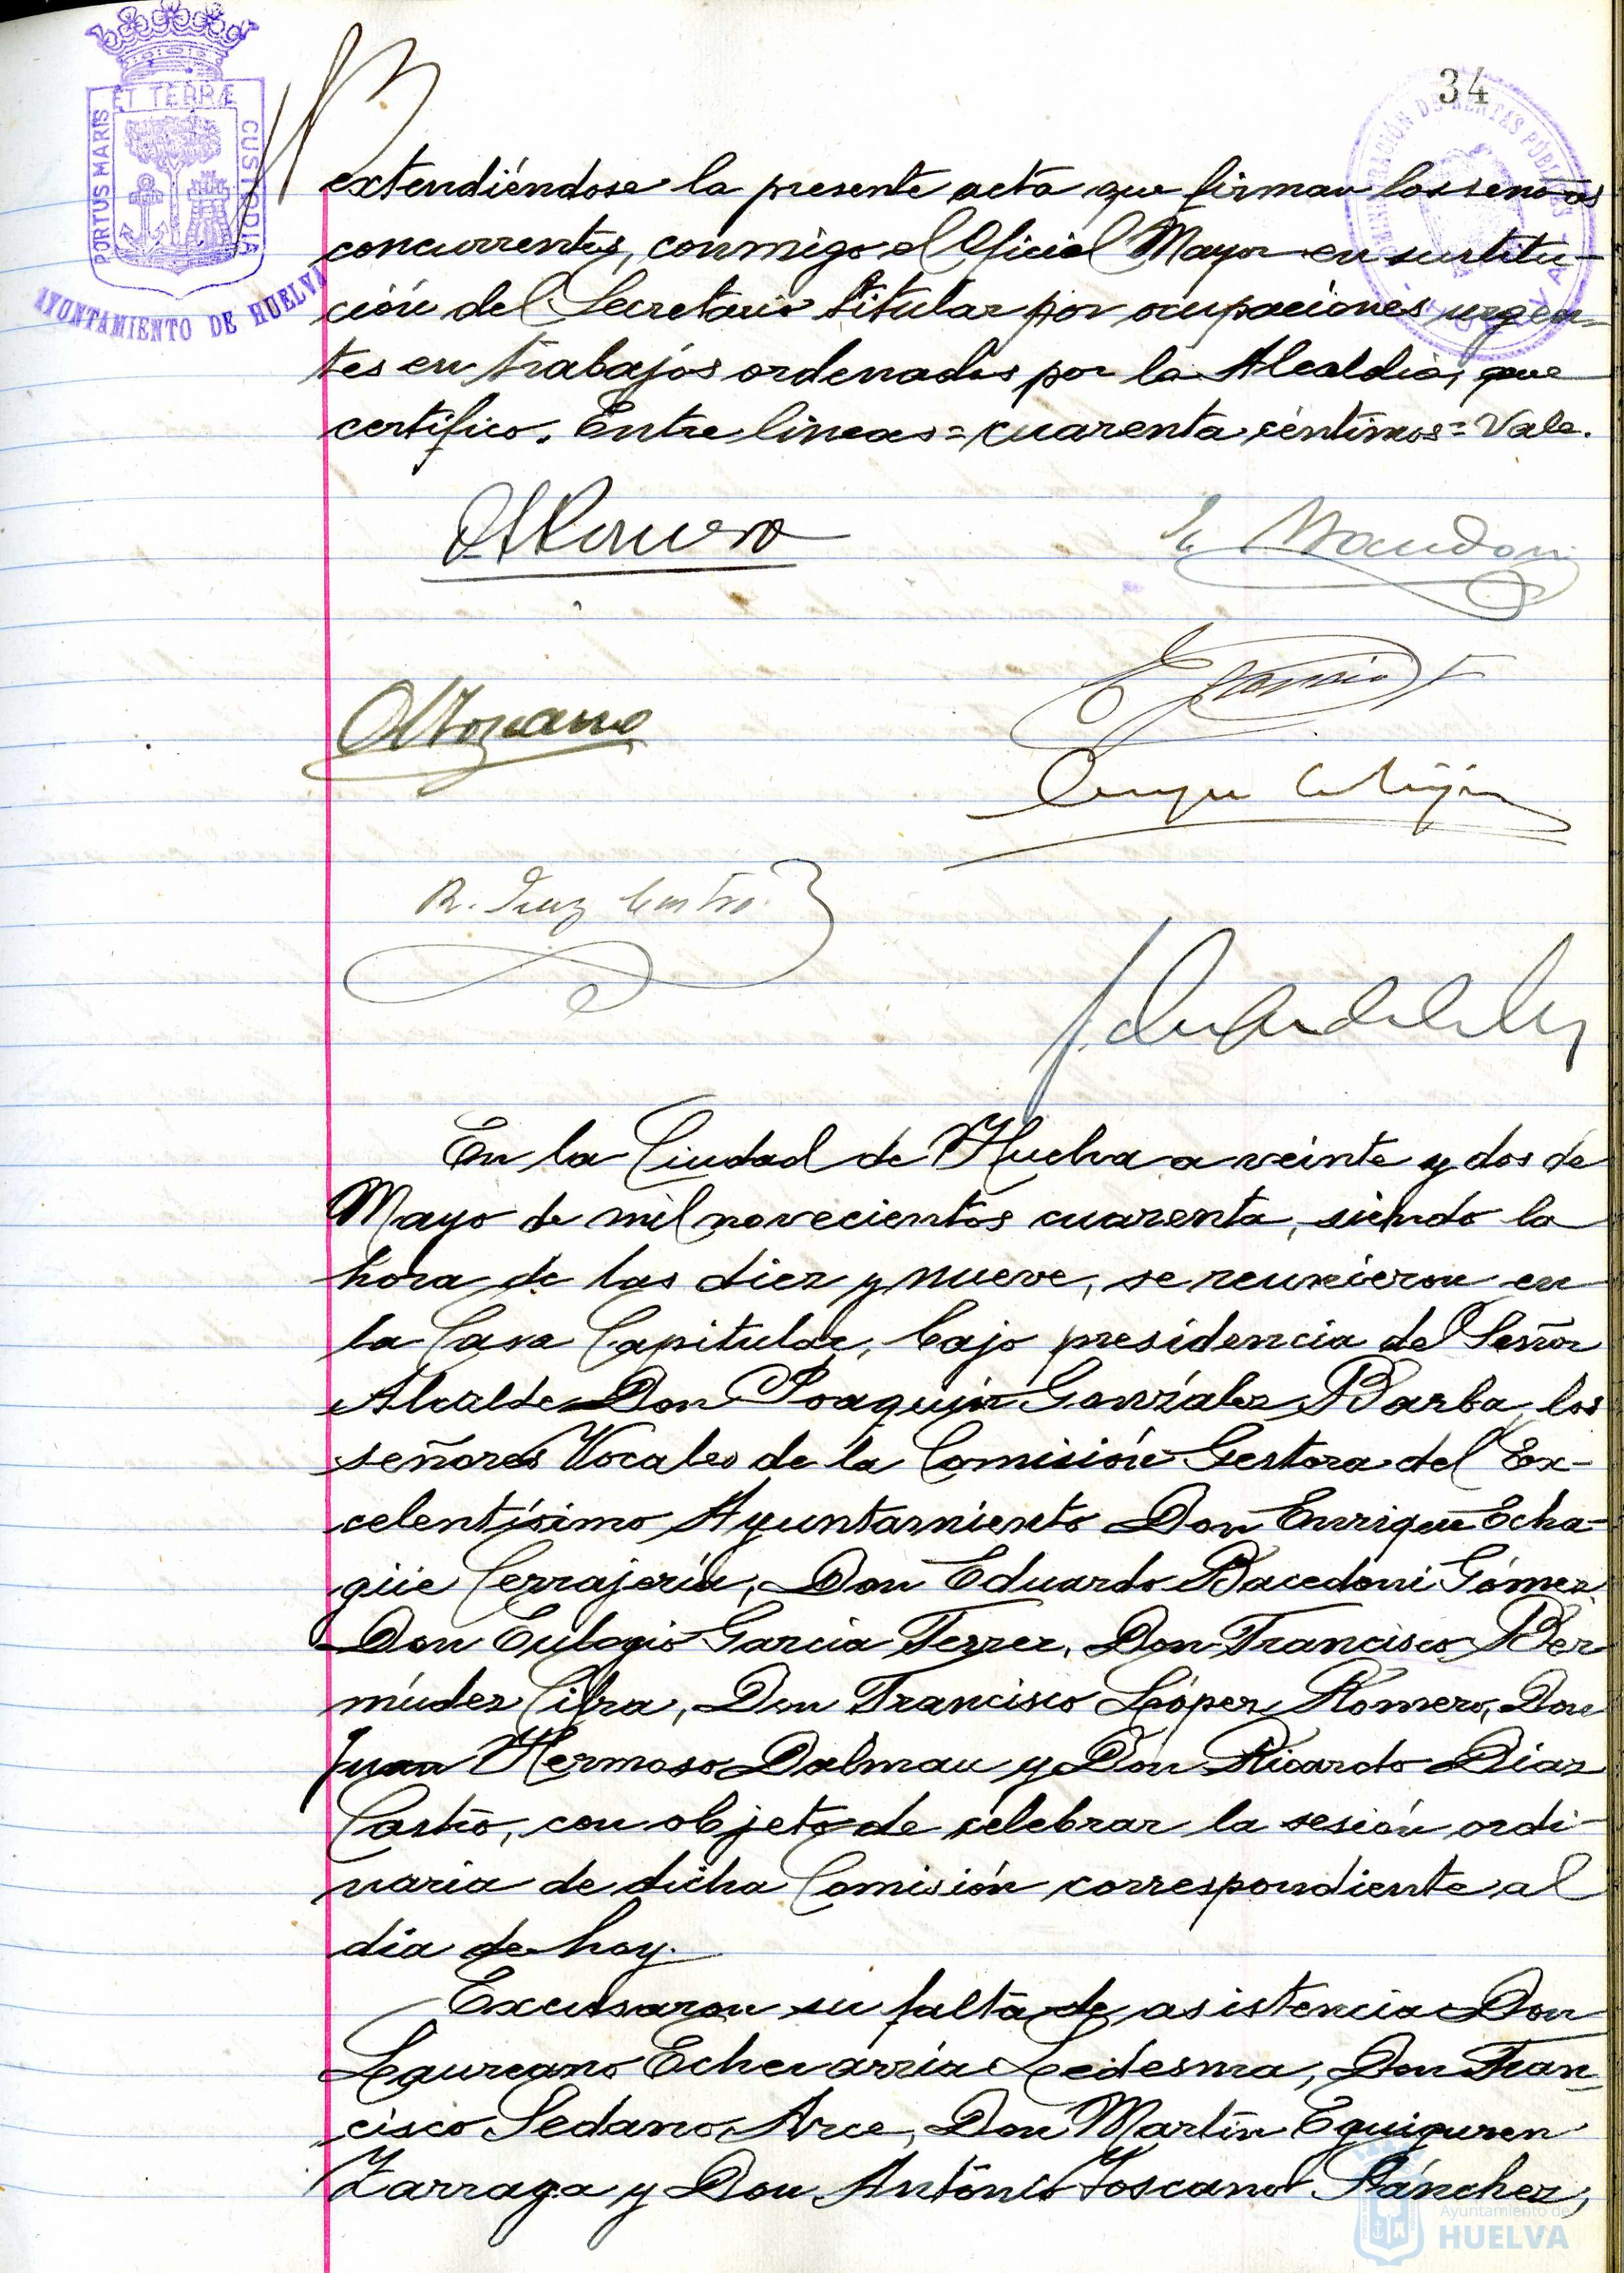 34
ET TERRÆ
PORTUS MARIS
CUSTODIA
AYUNTAMIENTO DE HUELVA
extendiéndose la presente acta que firman los señores
concurrentes, conmigo el Oficial Mayor en sustitu-
ción del Secretario titular por ocupaciones urgen-
tes en trabajos ordenados por la Alcaldía, que
certifico. Entre lineas = cuarenta céntimos = Vale.
R. Diaz Castro
En la Ciudad de Huelva a veinte y dos de
Mayo de mil novecientos cuarenta, siendo la
hora de las diez y nueve, se reunieron en
la Casa Capitular, bajo presidencia del Señor
Alcalde Don Joaquín González Barba, los
señores Vocales de la Comisión Gestora del Ex-
celentísimo Ayuntamiento Don Enrique Echa-
güe Cerrajería, Don Eduardo Bacedoni Gómez,
Don Eulogio García Ferrer, Don Francisco Ber
múdez Cifra, Don Francisco López Romero, Don
Juan Hermoso Dalmau y Don Ricardo Diaz
Castro, con objeto de celebrar la sesión ordi-
naria de dicha Comisión correspondiente al
dia de hoy.
Excusaron su falta de asistencia Don
Laureano Echevarría Ledesma, Don Fran-
cisco Sedano Arce, Don Martín Eguiguren
Zarraga y Don Antonio Toscano Sánchez,
Ayuntamiento de
HUELVA